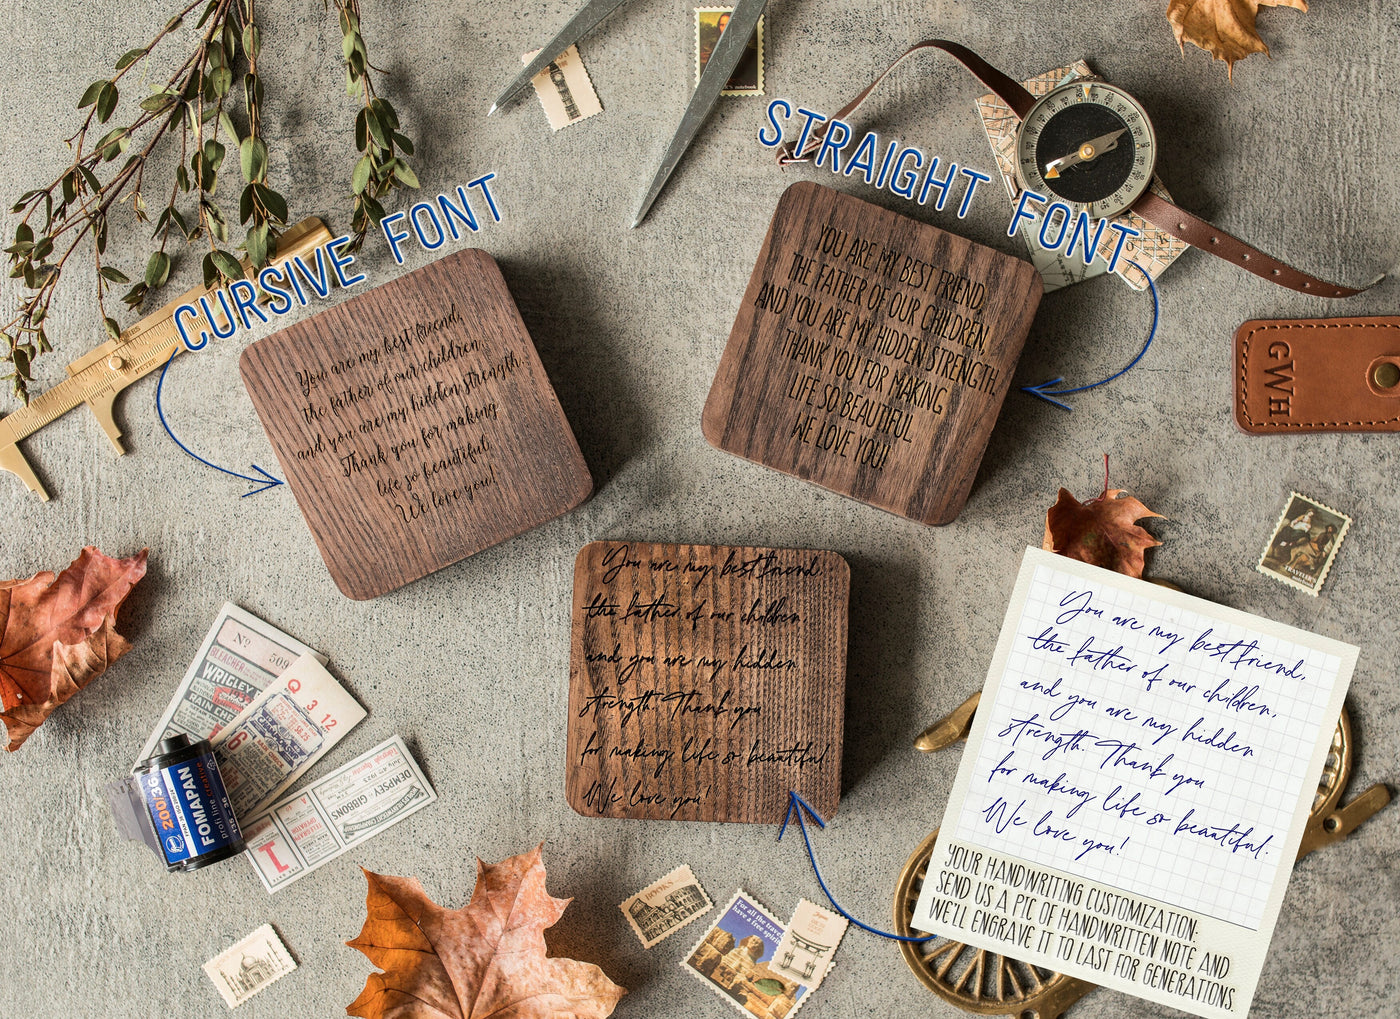 CURSIVE FONT
STRAIGHT FONT
You are my best friend,
the father of our children,
and you are my hidden strength.
Thank you for making
life so beautiful.
We love you!
YOU ARE MY BEST FRIEND,
THE FATHER OF OUR CHILDREN
AND YOU ARE MY HIDDEN STRENGTH.
THANK YOU FOR MAKING
LIFE SO BEAUTIFUL
WE LOVE YOU!
GWH
You are my best friend,
the father of our children
and you are my hidden
strength. Thank you
for making life so beautiful.
We love you!
You are my best friend,
the father of our children,
and you are my hidden
strength. Thank you
for making life so beautiful.
We love you!
YOUR HANDWRITNG CUSTOMIZATION:
SEND US A PIC OF HANDWRITTEN NOTE AND
WE'LL ENGRAVE IT TO LAST FOR GENERATIONS.
Nº 509
BLEACHER
WRIGLEY
RAIN CHECK
Q 3 12
6
DEMPSEY
GIBBONS
1
200/36
FOMAPAN
profi line creative
BOOKS
For all the travel
have a free spirit